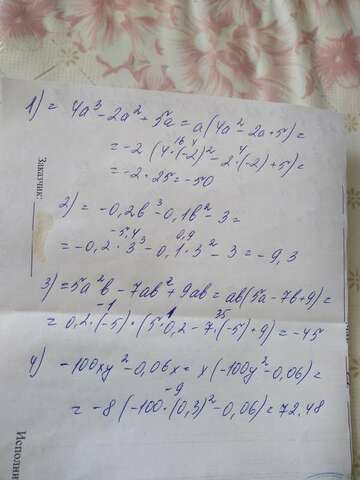 1) = 4a³ - 2a² + 5a = a(4a² - 2a + 5) =
= -2 (4 · (-2)² - 2 · (-2) + 5) =
16 4 4
= -2 · 25 = -50
2) = -0,2b³ - 0,1b² - 3 =
-5,4 0,9
= -0,2 · 3³ - 0,1 · 3² - 3 = -9,3
3) = 5a²b - 7ab² + 9ab = ab(5a - 7b + 9) =
-1 1 35
= 0,2 · (-5) · (5 · 0,2 - 7 · (-5) + 9) = -45
4) -100xy² - 0,06x = x(-100y² - 0,06) =
-9
= -8 (-100 · (0,3)² - 0,06) = 72,48
Заказчик:
Исполни